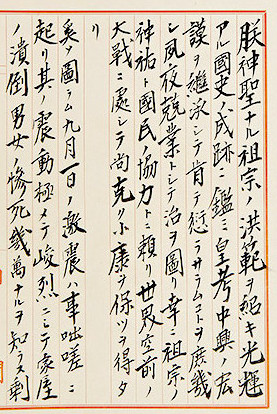 朕神聖ナル祖宗ノ洪範ヲ紹キ光輝
アル國史ノ成跡ニ鑑ミ皇考中興ノ宏
謨ヲ繼承シテ肯テ愆ラサラムコトヲ庶幾
シ夙夜兢業トシテ治ヲ圖リ幸ニ祖宗ノ
神祐ト國民ノ協力トニ頼リ世界空前ノ
大戰ニ處シテ尚克ク小康ヲ保ツヲ得タ
リ
奚ソ圖ラム九月一日ノ激震ハ事咄嗟ニ
起リ其ノ震動極メテ峻烈ニシテ家屋
ノ潰倒男女ノ慘死幾萬ナルヲ知ラス剰